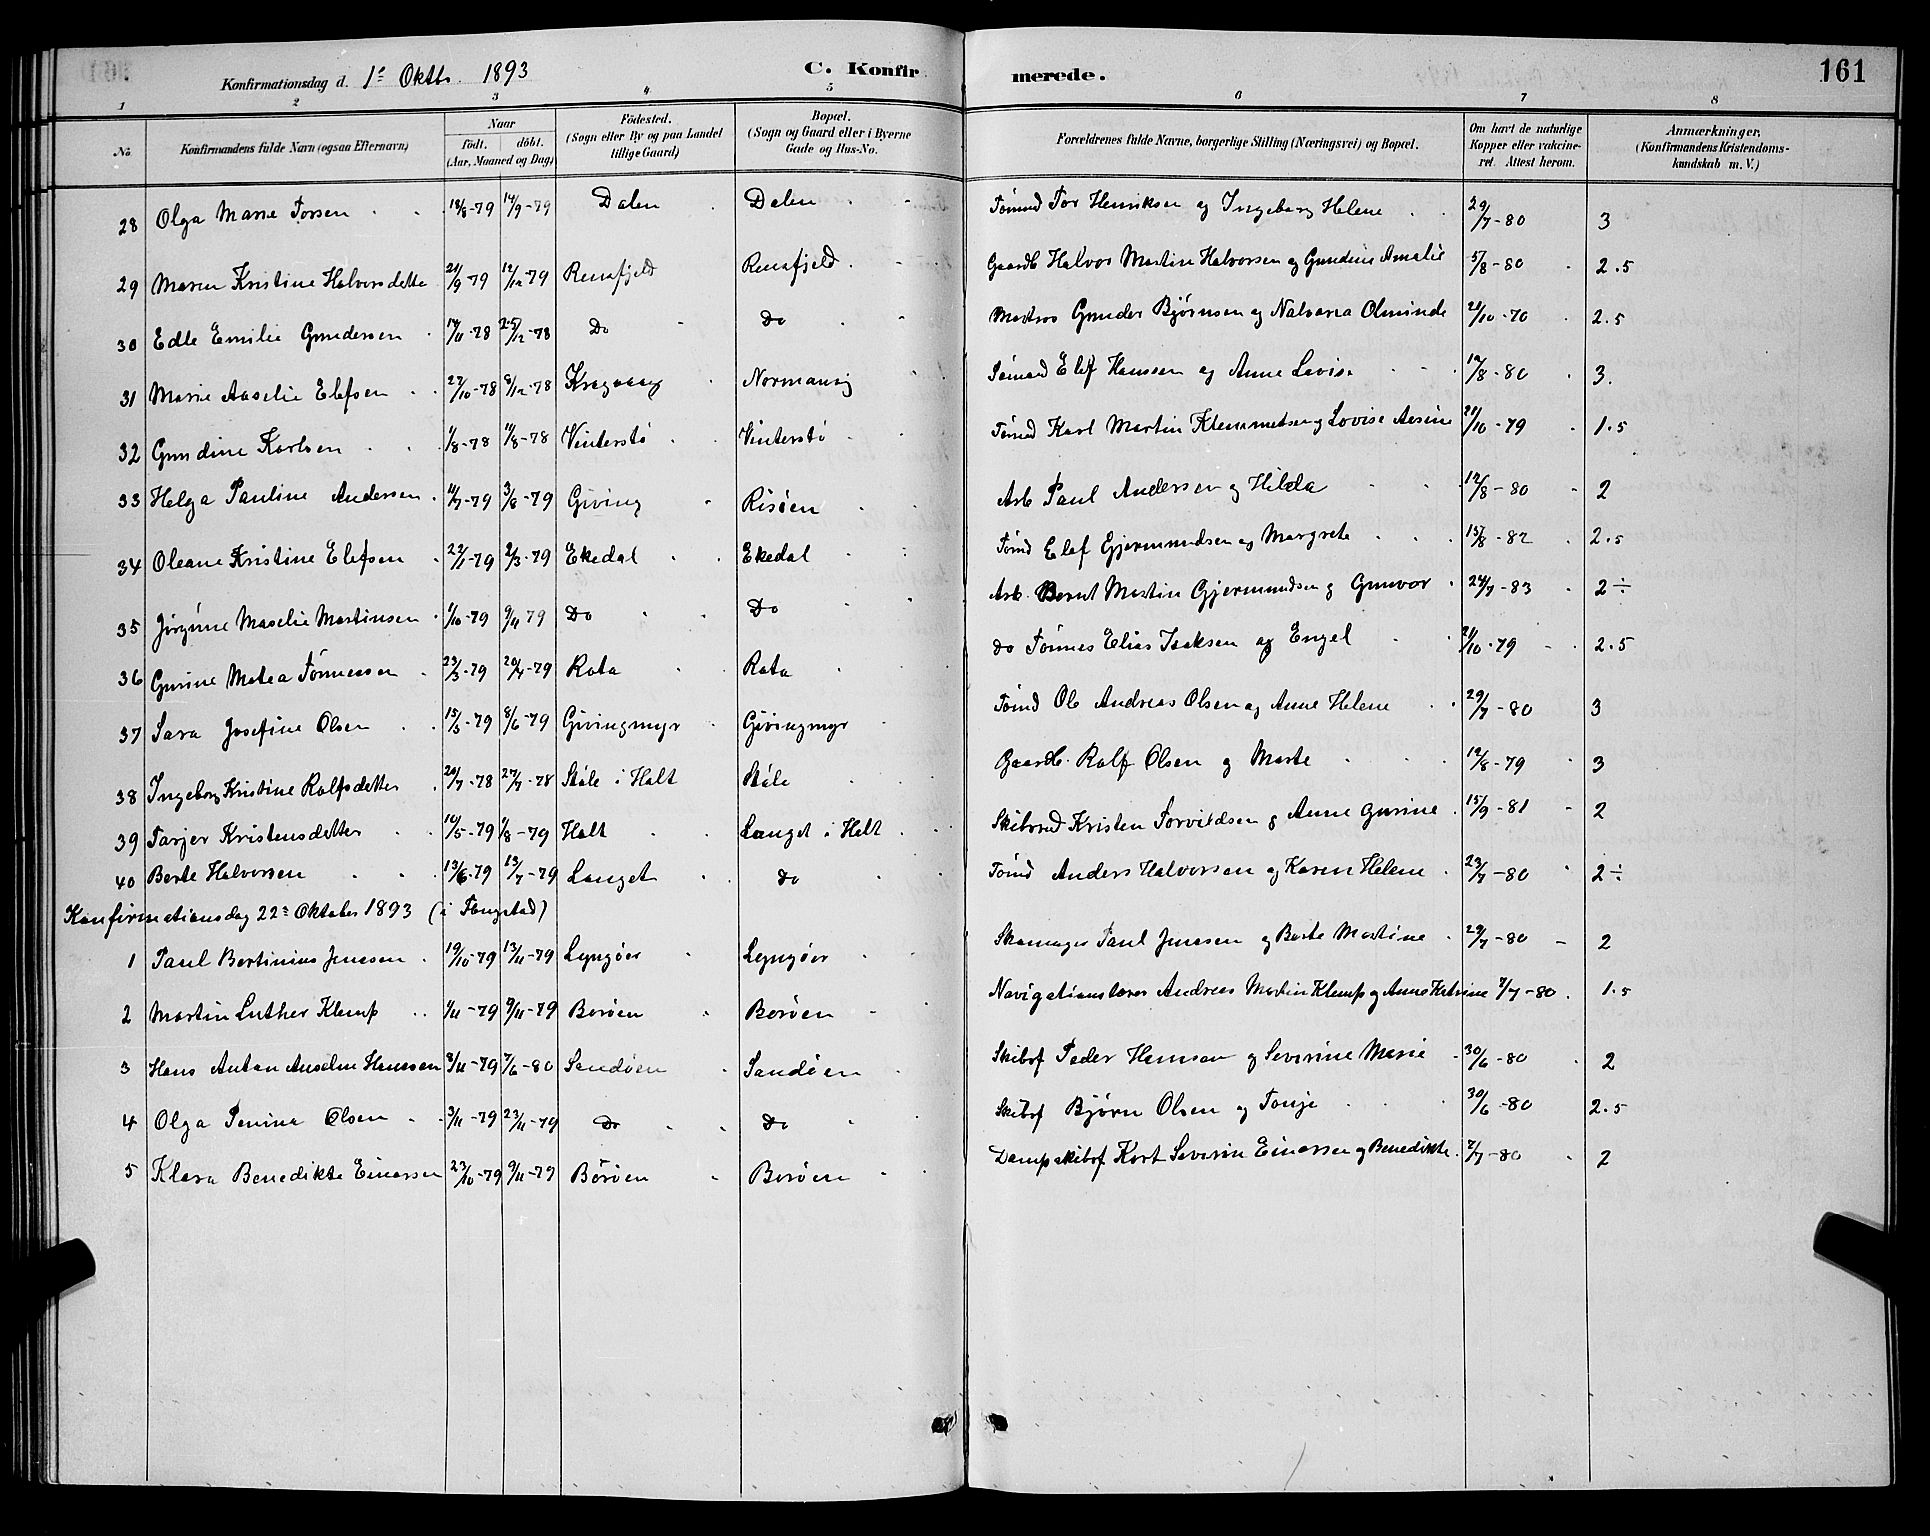 Konfirmationsdag d. 1ste Oktbr. 1893 C. Konfirmerede. 161
1 2 3 4 5 6 7 8
No. Konfirmandens fulde Navn (ogsaa Efternavn) Naar født. døbt. (Aar, Maaned og Dag) Fødested. (Sogn eller By og paa Landet tillige Gaard) Bopæl. (Sogn og Gaard eller i Byerne Gade og Hus-No. Forældrenes fulde Navne, borgerlige Stilling (Næringsvei) og Bopæl. Om havt de naturlige Kopper eller vakcineret. Attest herom. Anmærkninger. (Konfirmandens Kristendomskundskab m. V.)
28 Olga Marie Torsen 18/8-79 14/9-79 Dalen Dalen Tømmd Tor Henriksen og Ingeborg Helene 29/7-80 3
29 Maren Kristine Halvorsdatter 21/9-79 14/12-79 Rensfjeld Rensfjeld Gaardb Halvor Martin Halvorsen og Gundine Amalie 5/8-80 2.5
30 Edle Emilie Gundersen 14/11-78 25/12-78 Do Do Matros Gunder Bjørnsen og Nalvaria Olminde 21/10-70 2.5
31 Marie Aaselie Elefsen 27/10-78 8/12-78 Kragvaag Normansvig Tømmd Elef Hanssen og Anne Lovise 12/8-80 3.
32 Gundine Karlsen 1/8-78 11/8-78 Vinterstø Vinterstø Tømmd Karl Martin Klemmetsen og Lovise Aasine 21/10-79 1.5
33 Helga Pauline Andersen 11/7-79 3/8-79 Giving Risøen Arb Paul Andersen og Hilda 12/8-80 2
34 Oleane Kristine Elefsen 22/1-79 2/3-79 Ekedal Ekedal Tømd Elef Gjermundsen og Margrete 15/8-82 2.5
35 Jørgine Maselie Martinsen 1/10-79 9/11 79 Do Do Arb. Bernt Martin Gjermundsen og Gunvor 24/7-83 2÷
36 Gurine Matea Tønnessen 23/3-79 20/4-79 Rota Rota do Tønnes Elias Isaksen og Engel 21/10-79 2.5
37 Sara Josefine Olsen 15/3-79 8/6-79 Givingmyr Givingmyr Tømd Ole Andreas Olsen og Anne Helene 29/7-80 3
38 Ingeborg Kristine Rolfsdatter 20/7-78 27/7-78 Støle i Holt Støle Gaardb. Rolf Olsen og Marte 12/8-79 3
39 Tarjer Kristensdatter 16/5-79 1/8-79 Holt Langet i Holt Skibsrd Kristen Torvildsen og Anne Gurine 15/9-81 2
40 Berte Halvorsen 13/6-79 13/7-79 Langet do Tømd Anders Halvorsen og Karen Helene 23/7-80 2÷
Konfirmationsdag 22de Oktober 1893
1 Paul Bertinius Jenssen 19/10-79 13/11-79 Lyngøer Lyngøer Skomager Paul Jenssen og Berte Martine 29/7-80 2
2 Martin Luther Klemp 1/11-79 9/11-79 Borøen Borøen Navigationslærer Andreas Martin Klemp og Anne Katrine 7/7-80 1.5
3 Hans Anton Anselm Hanssen 8/11-79 7/6-80 Sandøen Sandøen Skibsf Peder Hansen og Severine Marie 30/6-80 2
4 Olga Penina Olsen 3/11-79 23/11-79 Do Do Skibsf Bjørn Olsen og Tonje 30/6-80 2.5
5 Klara Benedikte Einarsen 23/10-79 9/11-79 Borøen Borøen Dampskibsf Kort Severin Einarsen og Benedikte 7/7-80 2